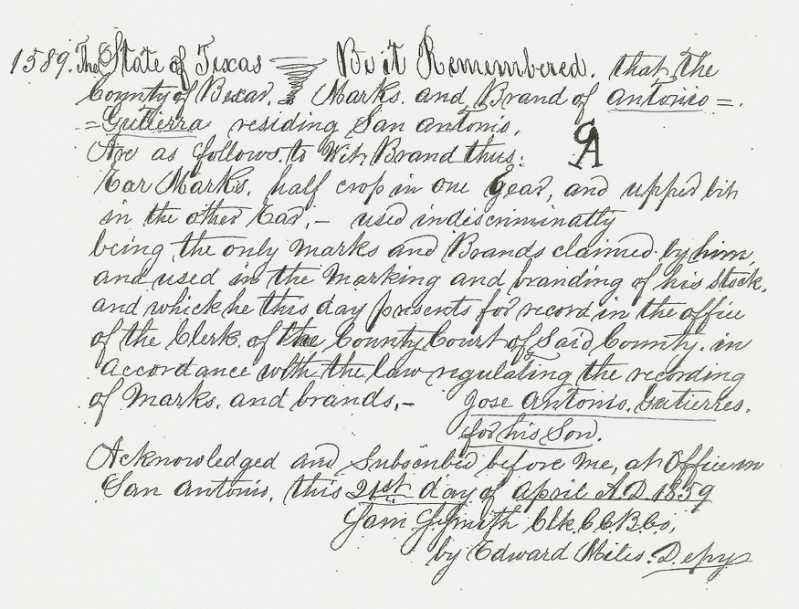 1589. The State of Texas Be it Remembered. that, the
County of Bexar. Marks. and Brand of Antonio =.
= Gutierra residing San Antonio,
Are as follows. to Wit, Brand thus: GA
Ear Marks. half crop in one Ear, and upper bit
in the other Ear, – used indiscriminatly
being the only marks and Brands claimed by him,
and used in the Marking and branding of his Stock,
and which he this day presents for record in the office
of the Clerk. of the County Court of Said County. in
accordance with the law regulating the recording
of Marks. and brands, – Jose Antonio. Gutierres.
for his Son.
Acknowledged and Subscribed before Me, at Office in
San Antonio, this 21st day of April A.D. 1859
Sam S. Smith Clk. C.C.B.Co,
by Edward Miles. Depy